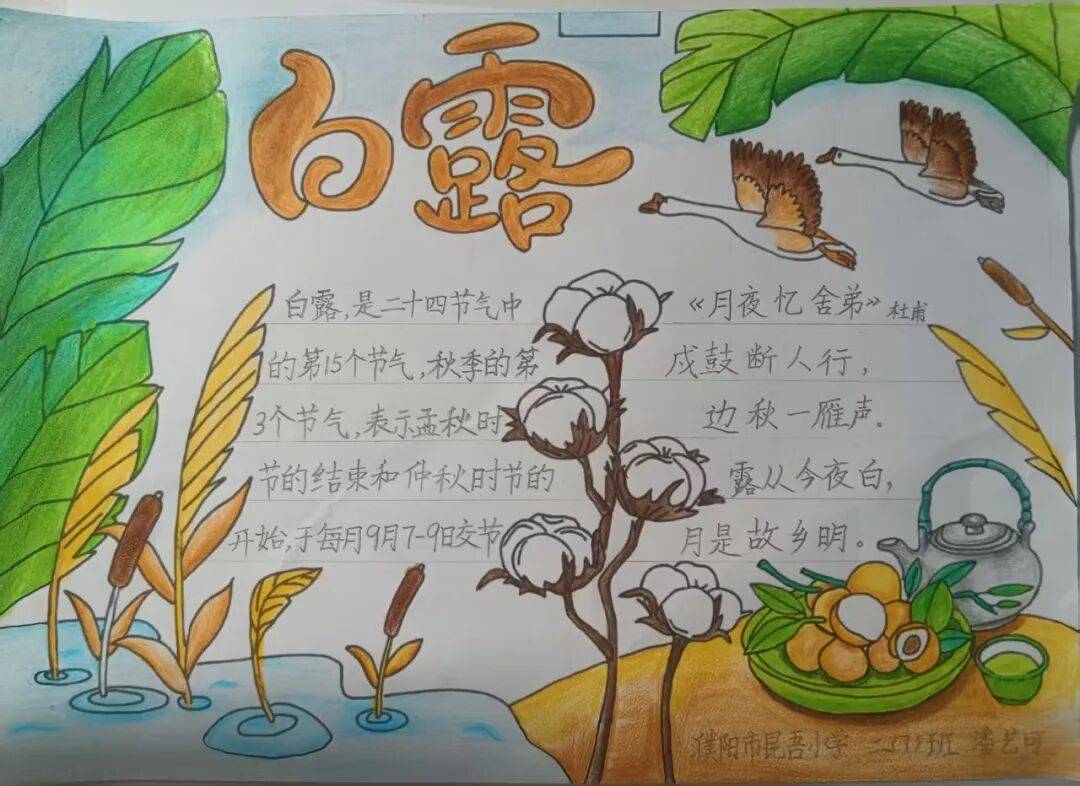 白露
白露,是二十四节气中
的第15个节气,秋季的第
3个节气,表示孟秋时
节的结束和仲秋时节的
开始,于每月9月7-9日交节
《月夜忆舍弟》杜甫
戍鼓断人行,
边秋一雁声。
露从今夜白,
月是故乡明。
濮阳市昆吾小学 二(7)班 潘艺可